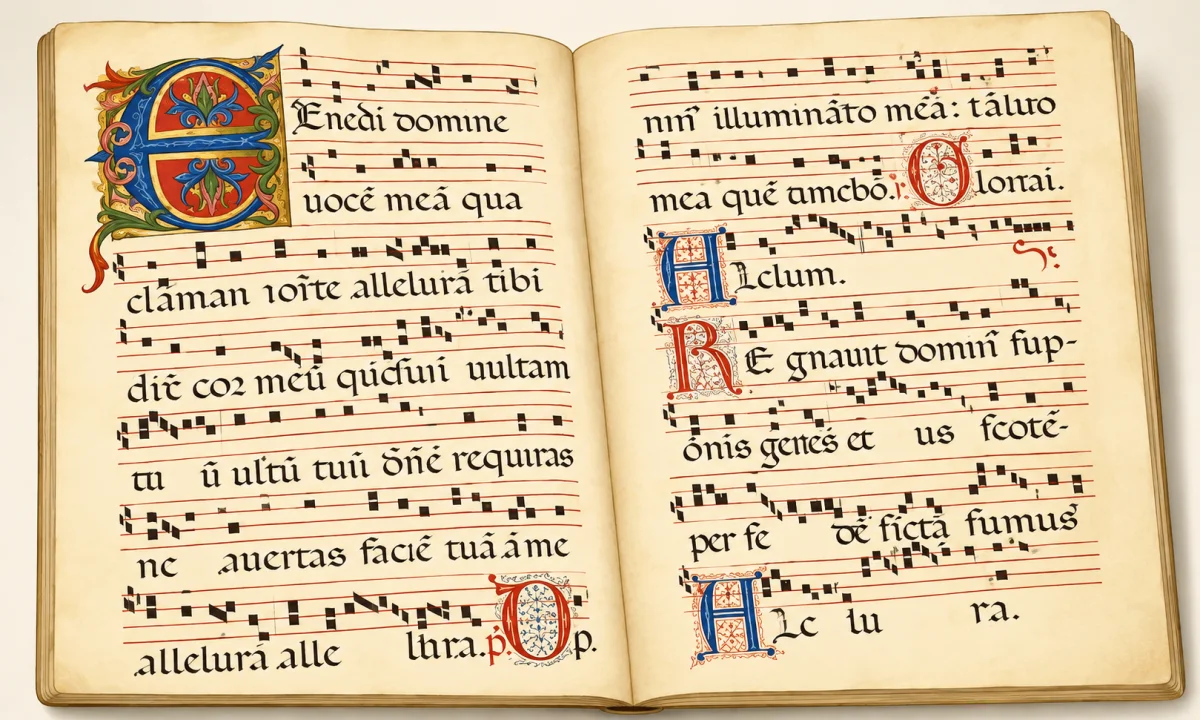 Enedi domine
uocē meā qua
clāman ioīte allelurā tibi
dic̄ cor meū quicſuri uultam
tu ū ulſtū tuū ōnē requiras
ne auertas faciē tuā ā me
allelurā alle lhra. p. Op.
nm̄ illumināto mēā: tāluo
mea quē timebō. r. Glortai.
ALclum.
RE gnauit domin̄ fup-
ōnis gertes et us fcotē-
per fe dē fictā fumus
ALc lu ra.